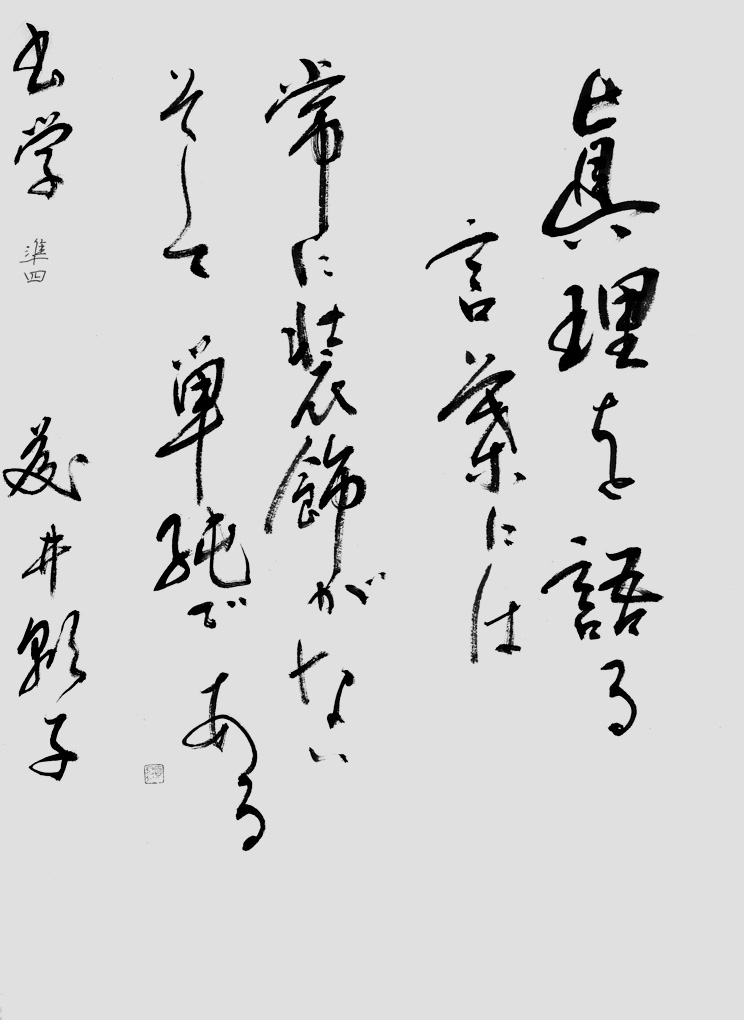 眞理を語る
言葉には
常に装飾がない
そして単純である
書学 準四 藤井彰子